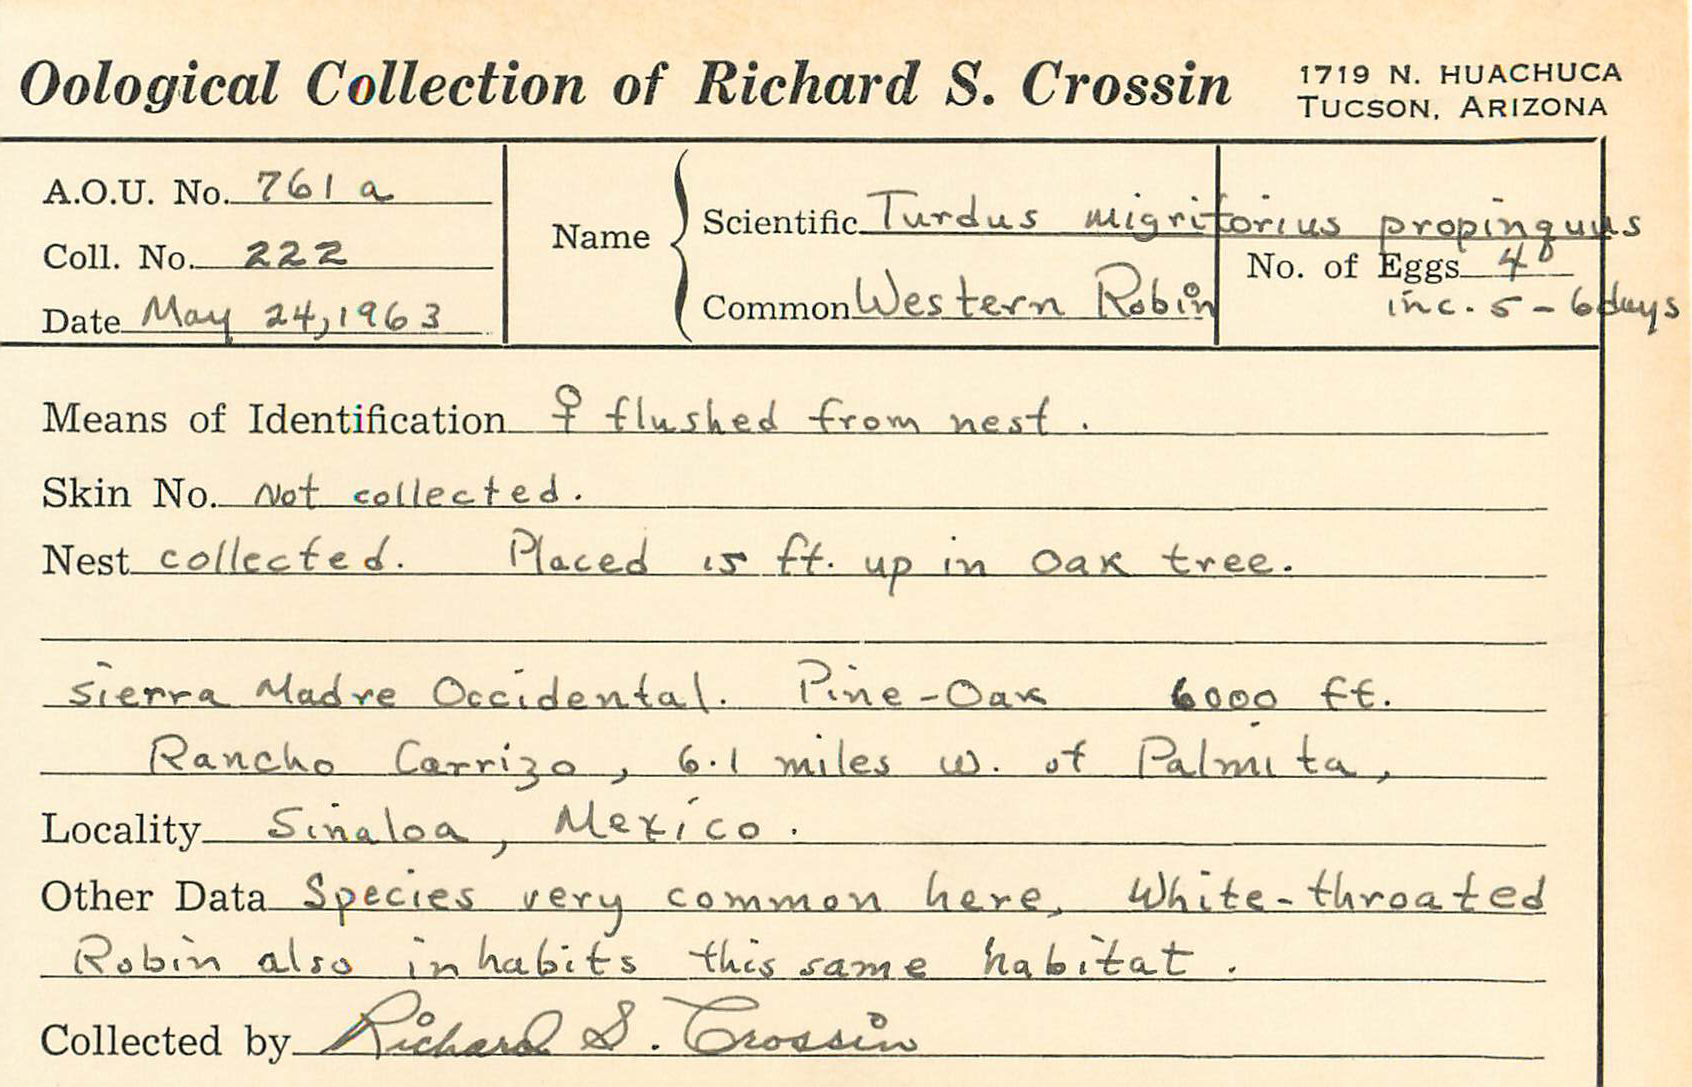 Oological Collection of Richard S. Crossin
1719 N. HUACHUCA
TUCSON, ARIZONA
A.O.U. No. 761 a
Coll. No. 222
Date May 24, 1963
Name
Scientific Turdus migritorius propinquus
Common Western Robin
No. of Eggs 4
inc. 5 - 6 days
Means of Identification ♀ flushed from nest.
Skin No. Not collected.
Nest collected. Placed 15 ft. up in Oak tree.
Sierra Madre Occidental. Pine-Oak 6000 ft.
Rancho Carrizo, 6.1 miles w. of Palmita,
Locality Sinaloa, Mexico.
Other Data Species very common here, White-throated
Robin also inhabits this same habitat.
Collected by Richard S. Crossin